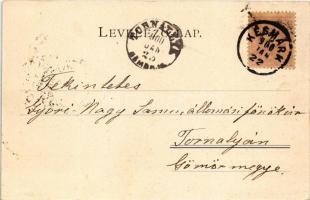 LEVELEZŐ-LAP.
TORNALJA
900
JAN
23
KÉSMÁRK
900
JAN
22
Tekintetes
Győri-Nagy Samu, állomási főnök úr
Tornalyán
Gömörmegye.